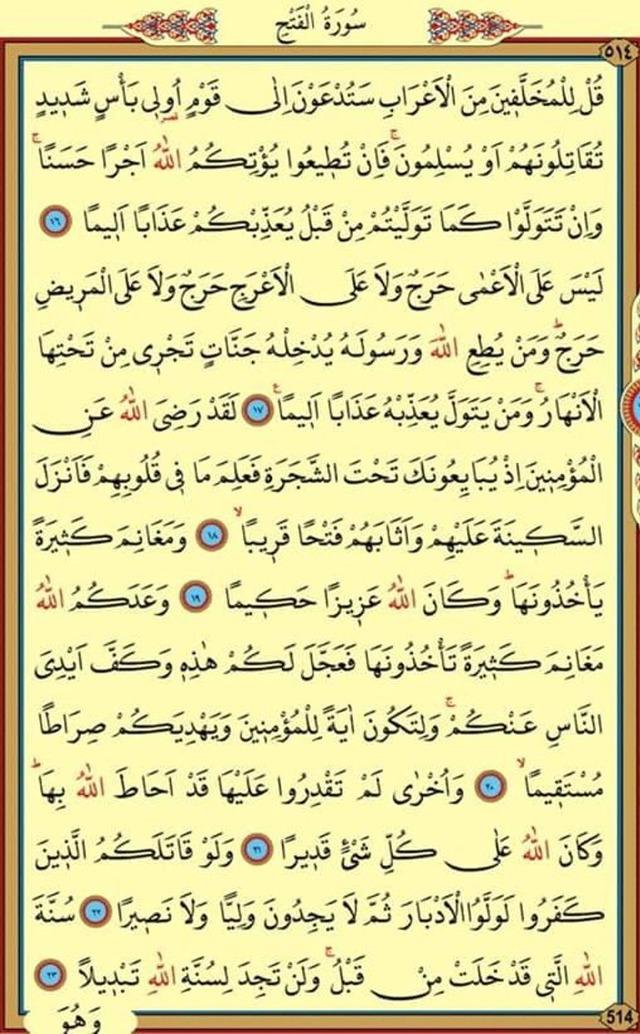 سُورَةُ الْفَتْحِ
٥١٤
قُلْ لِلْمُخَلَّفٖينَ مِنَ الْاَعْرَابِ سَتُدْعَوْنَ اِلٰى قَوْمٍ اُو۬لٖى بَأْسٍ شَدٖيدٍ
تُقَاتِلُونَهُمْ اَوْ يُسْلِمُونَۚ فَاِنْ تُطٖيعُوا يُؤْتِكُمُ اللّٰهُ اَجْرًا حَسَنًاۚ
وَاِنْ تَتَوَلَّوْا كَمَا تَوَلَّيْتُمْ مِنْ قَبْلُ يُعَذِّبْكُمْ عَذَابًا اَلٖيمًا ١٦
لَيْسَ عَلَى الْاَعْمٰى حَرَجٌ وَلَا عَلَى الْاَعْرَجِ حَرَجٌ وَلَا عَلَى الْمَرٖيضِ
حَرَجٌؕ وَمَنْ يُطِعِ اللّٰهَ وَرَسُولَهُ يُدْخِلْهُ جَنَّاتٍ تَجْرٖى مِنْ تَحْتِهَا
الْاَنْهَارُۚ وَمَنْ يَتَوَلَّ يُعَذِّبْهُ عَذَابًا اَلٖيمًاࣖ ١٧ لَقَدْ رَضِىَ اللّٰهُ عَنِ
الْمُؤْمِنٖينَ اِذْ يُبَايِعُونَكَ تَحْتَ الشَّجَرَةِ فَعَلِمَ مَا فٖى قُلُوبِهِمْ فَاَنْزَلَ
السَّكٖينَةَ عَلَيْهِمْ وَاَثَابَهُمْ فَتْحًا قَرٖيبًاۙ ١٨ وَمَغَانِمَ كَثٖيرَةً
يَأْخُذُونَهَاؕ وَكَانَ اللّٰهُ عَزٖيزًا حَكٖيمًا ١٩ وَعَدَكُمُ اللّٰهُ
مَغَانِمَ كَثٖيرَةً تَأْخُذُونَهَا فَعَجَّلَ لَكُمْ هٰذِهٖ وَكَفَّ اَيْدِىَ
النَّاسِ عَنْكُمْۚ وَلِتَكُونَ اٰيَةً لِلْمُؤْمِنٖينَ وَيَهْدِيَكُمْ صِرَاطًا
مُسْتَقٖيمًاۙ ٢٠ وَاُخْرٰى لَمْ تَقْدِرُوا عَلَيْهَا قَدْ اَحَاطَ اللّٰهُ بِهَاؕ
وَكَانَ اللّٰهُ عَلٰى كُلِّ شَىْءٍ قَدٖيرًا ٢١ وَلَوْ قَاتَلَكُمُ الَّذٖينَ
كَفَرُوا لَوَلَّوُا الْاَدْبَارَ ثُمَّ لَا يَجِدُونَ وَلِيًّا وَلَا نَصٖيرًا ٢٢ سُنَّةَ
اللّٰهِ الَّتٖى قَدْ خَلَتْ مِنْ قَبْلُۚ وَلَنْ تَجِدَ لِسُنَّةِ اللّٰهِ تَبْدٖيلًا ٢٣
وَهُوَ
514